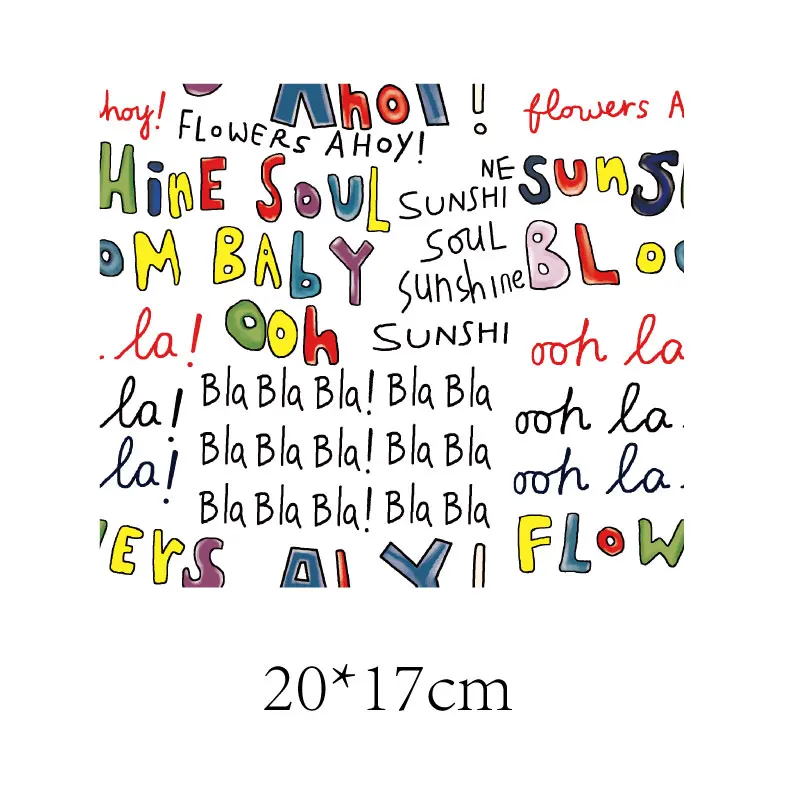 Ahoy!
hoy!
FLOWERS AHOY!
flowers A
HINE SOUL
NE
SUNSHI
SUNS
OM BABY
SOUL
BLOO
sunshine
la!
Ooh
SUNSHI
ooh la
la!
Bla Bla Bla! Bla Bla
ooh la
la!
Bla Bla Bla! Bla Bla
ooh la
Bla Bla Bla! Bla Bla
ERS
FLOW
20*17cm